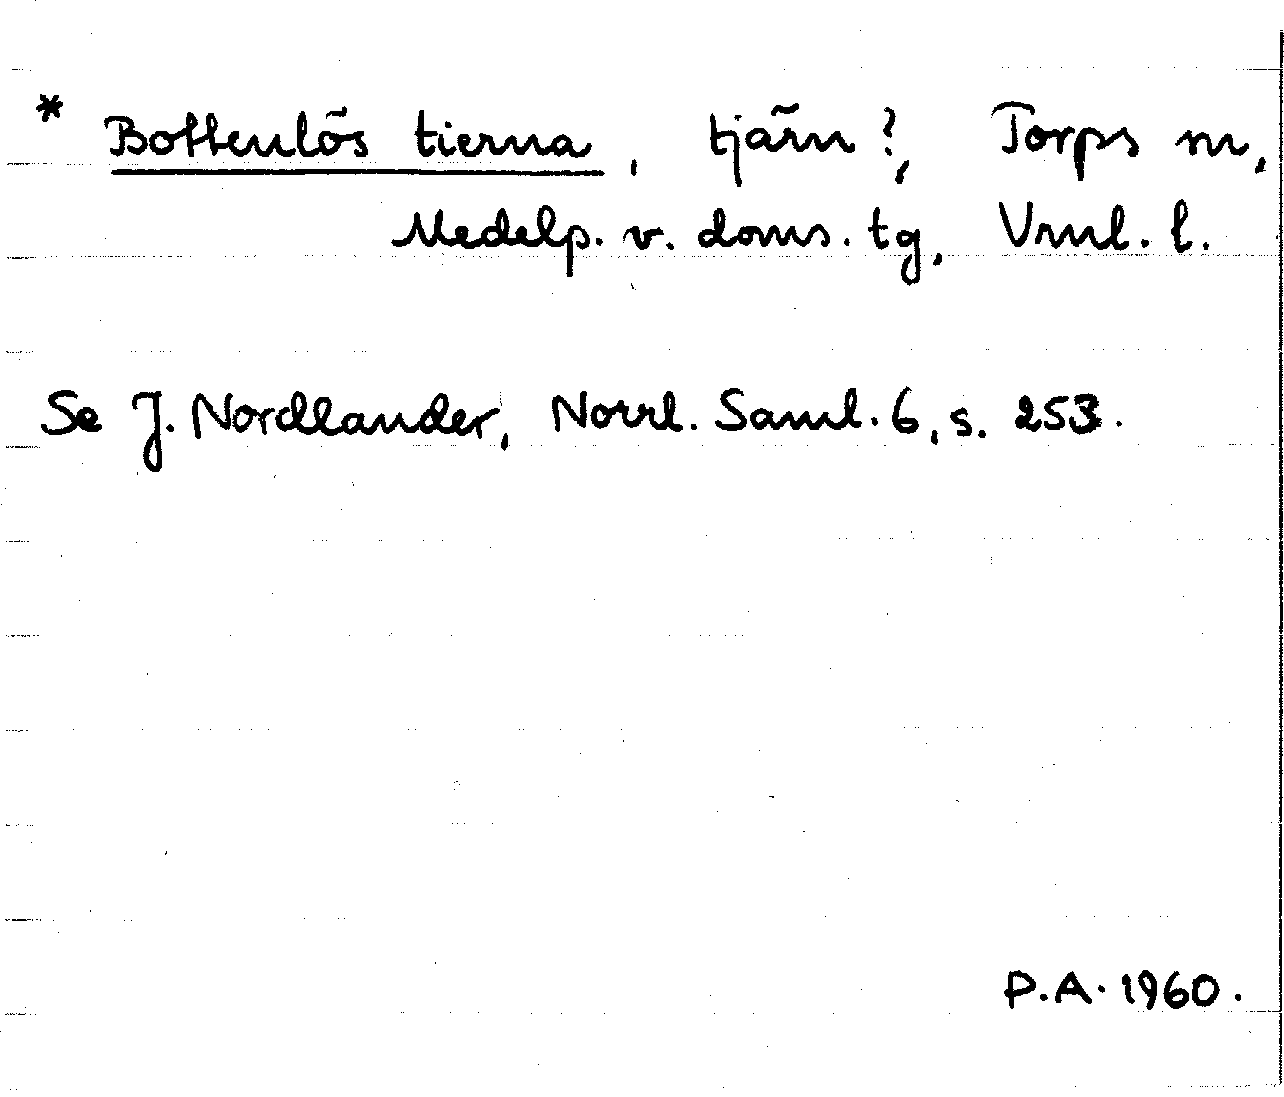 * Bottenlös tierna, tjärn?, Torps sn,
Medelp. v. doms. tg, Vnrl. l.
Se J. Nordlander, Norrl. Saml. 6, s. 253.
P.A. 1960.